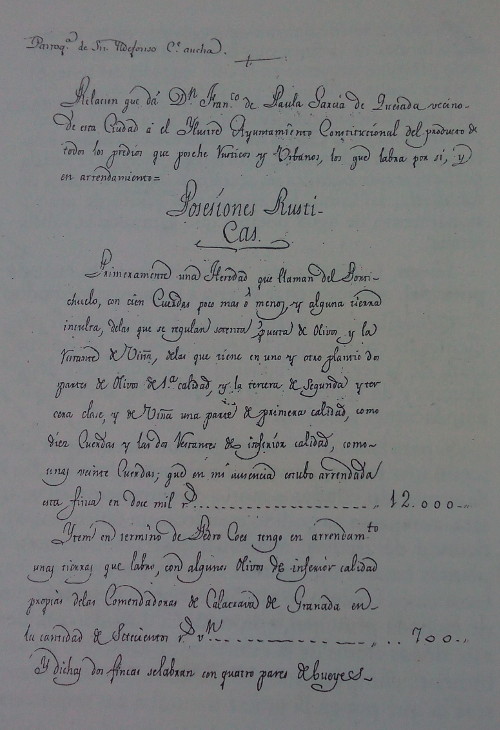 Parroq.ª de Sn. Yldefonso C.ª ancha.
Relacion que dá Dn. Fran.co de Paula Garcia de Quesada vecino
de esta Ciudad á el Yllustre Ayuntamiento Constitucional del producto de
todos los predios que poséhe Rusticos y Urbanos, los que labra por sí, y
en arrendamiento=
Posesiones Rusti-
Cas.
Primeramente una Heredad que llaman del Ponti-
chuelo, con cien Cuerdas poco mas ó menos, y alguna tierra
inculta, delas que se regulan setenta puesta de Olivos y la
restante de Viña, delas que tiene en uno y otro plantio dos
partes de Olivos de 1.ª calidad, y la tercera de Segunda y ter
cera clase, y de Viña una parte de primera calidad, como
diez Cuerdas y las dos restantes de inferior calidad, como-
unas veinte Cuerdas; que en mi ausencia estubo arrendada
esta finca en doce mil rd. 12.000
Ytem en termino de Pedro Coes tengo en arrendam.to
unas tierras que labro, con algunos Olivos de inferior calidad
propias delas Comendadoras de Calatrava de Granada en-
la cantidad de Setecientos rd vn. 700
Y dichas dos fincas selabran con quatro pares de bueyes